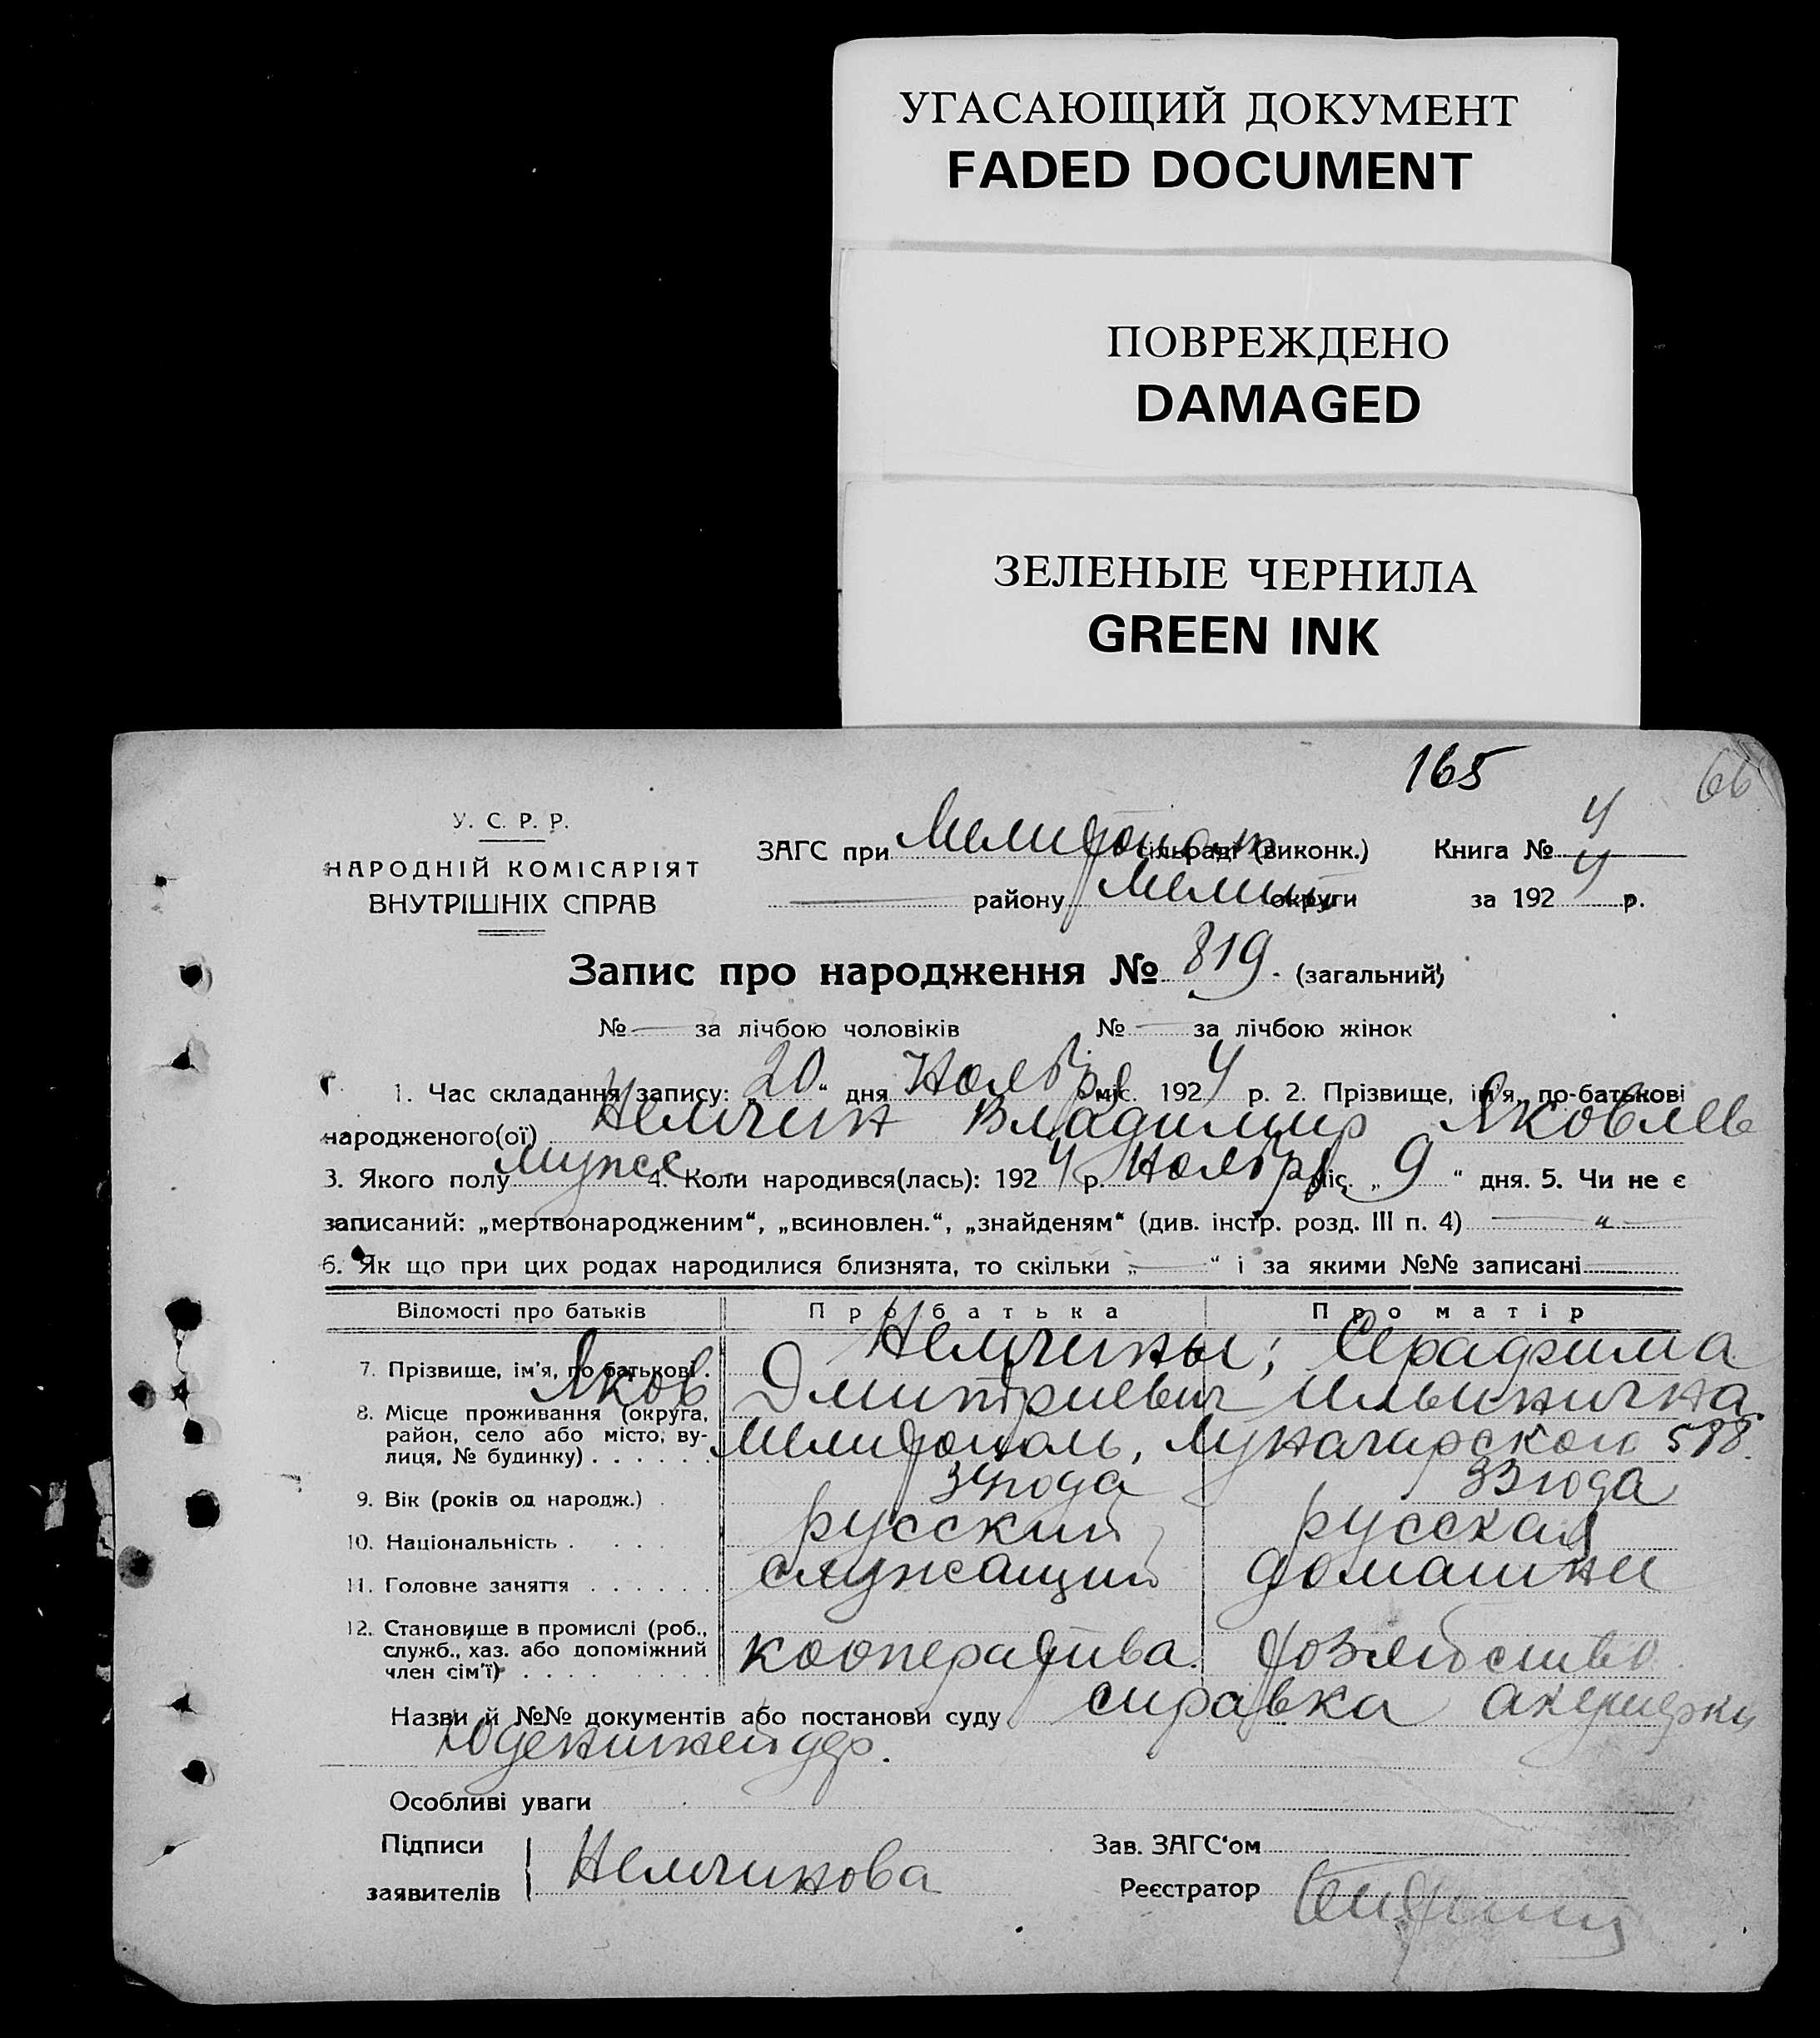 УГАСАЮЩИЙ ДОКУМЕНТ
FADED DOCUMENT
ПОВРЕЖДЕНО
DAMAGED
ЗЕЛЕНЫЕ ЧЕРНИЛА
GREEN INK
165 66
У. С. Р. Р.
НАРОДНІЙ КОМІСАРІЯТ
ВНУТРІШНІХ СПРАВ
ЗАГС при Мелитопольск сільраді (виконк.) Книга № 4
району Мелит округи за 1924 р.
Запис про народження № 819. (загальний)
№ — за лічбою чоловіків № — за лічбою жінок
1. Час складання запису: „20“ дня Ноябр міс. 1924 р. 2. Прізвище, ім'я, по-батькові
народженого(ої) Немчин Владимир Яковлев
3. Якого полу мужск 4. Коли народився(лась): 1924 р. Ноябр міс. „9“ дня. 5. Чи не є
записаний: „мертвонародженим“, „всиновлен.“, „знайденям“ (див. інстр. розд. III п. 4) — „ —
6. Як що при цих родах народилися близнята, то скільки „—“ і за якими №№ записані
Відомості про батьків Про батька Про матір
7. Прізвище, ім'я, по батькові. Немчины; Серафима
Яков Дмитриевич Ильинична
8. Місце проживання (округа, район, село або місто, вулиця, № будинку) . . . . . . Мелитополь, Луначарского
9. Вік (років од народж.) . 34 года 33 года
10. Національність . . . . русский русская
11. Головне заняття . . . . . . служащий домашне
12. Становище в промислі (роб., служб., хаз. або допоміжний член сім'ї) . . . . . . кооператива. хозяйство
Назви й №№ документів або постанови суду справка акушерки
Особливі уваги
Підписи
заявителів Немчинова
Зав. ЗАГС'ом
Реєстратор